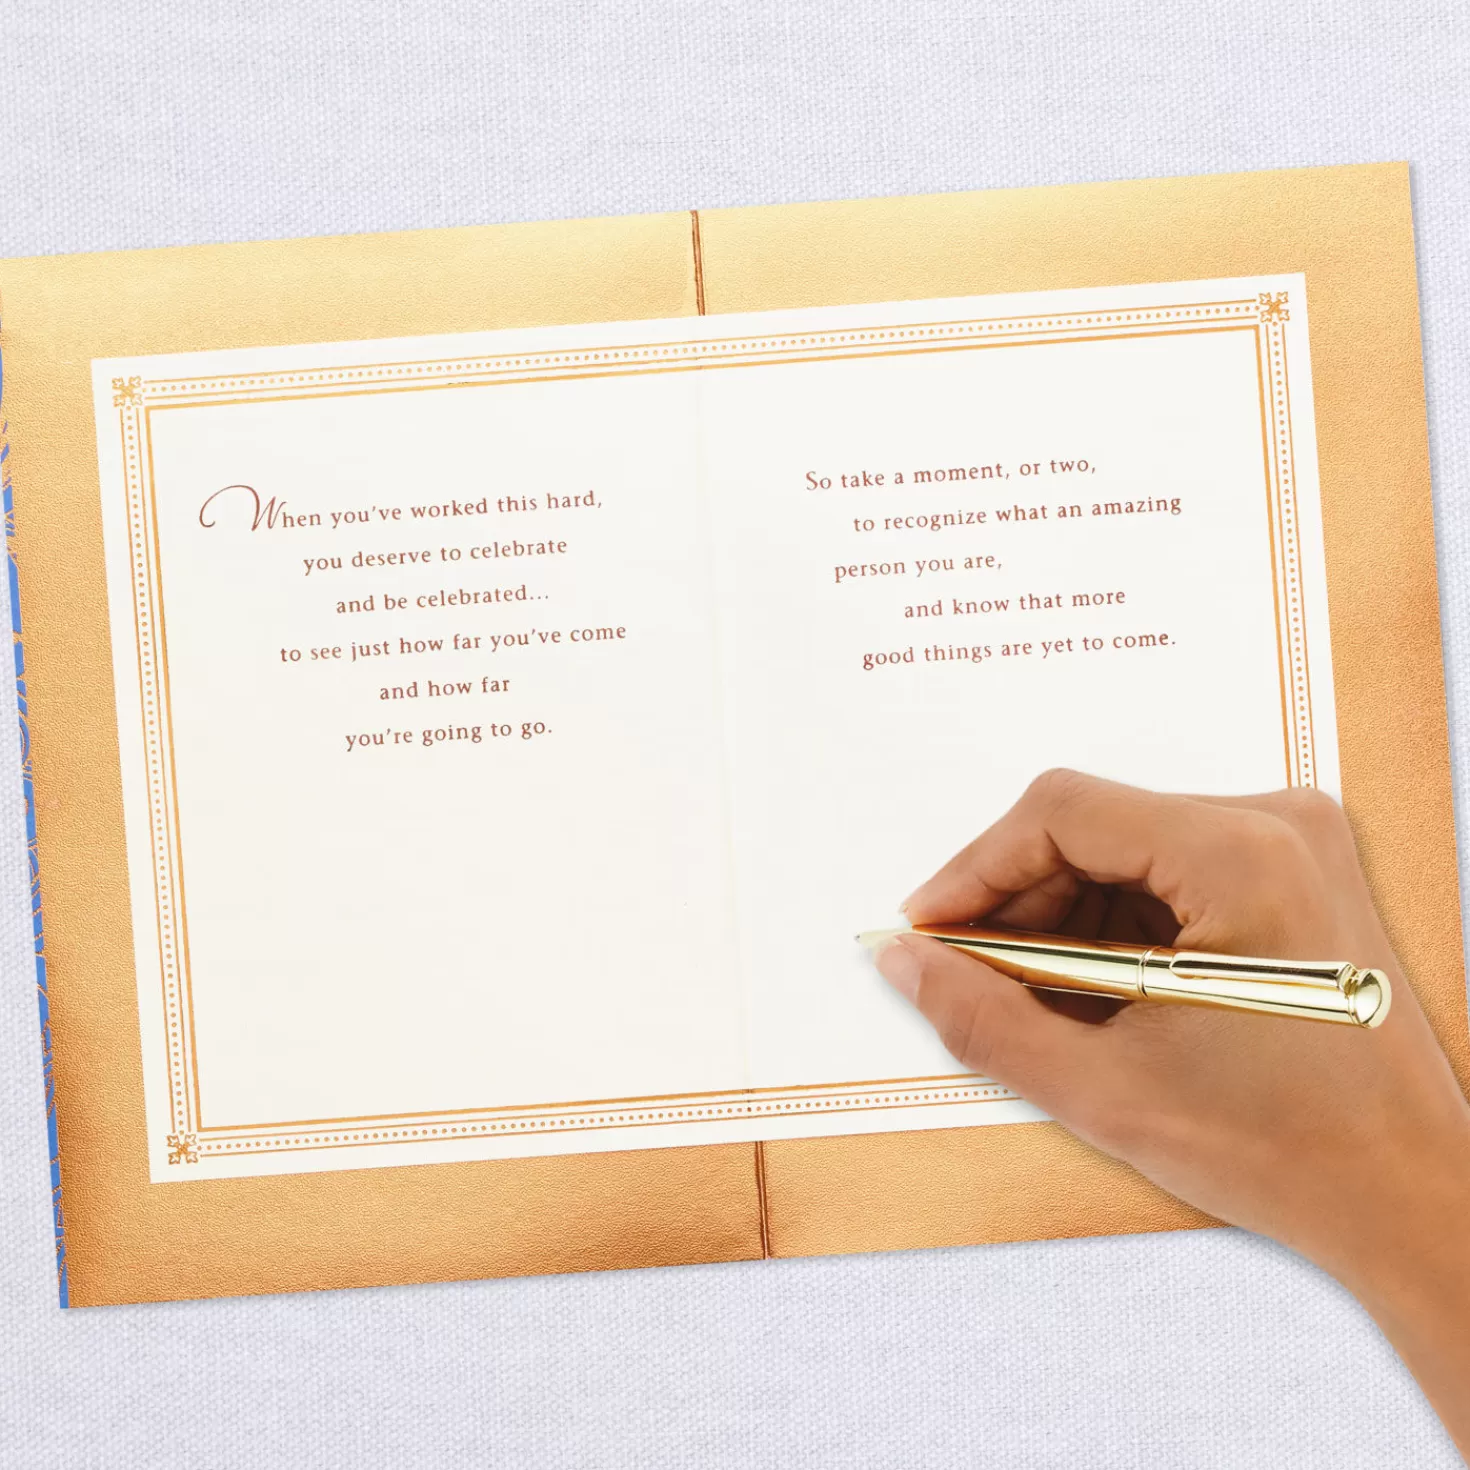 When you've worked this hard,
you deserve to celebrate
and be celebrated...
to see just how far you've come
and how far
you're going to go.
So take a moment, or two,
to recognize what an amazing
person you are,
and know that more
good things are yet to come.